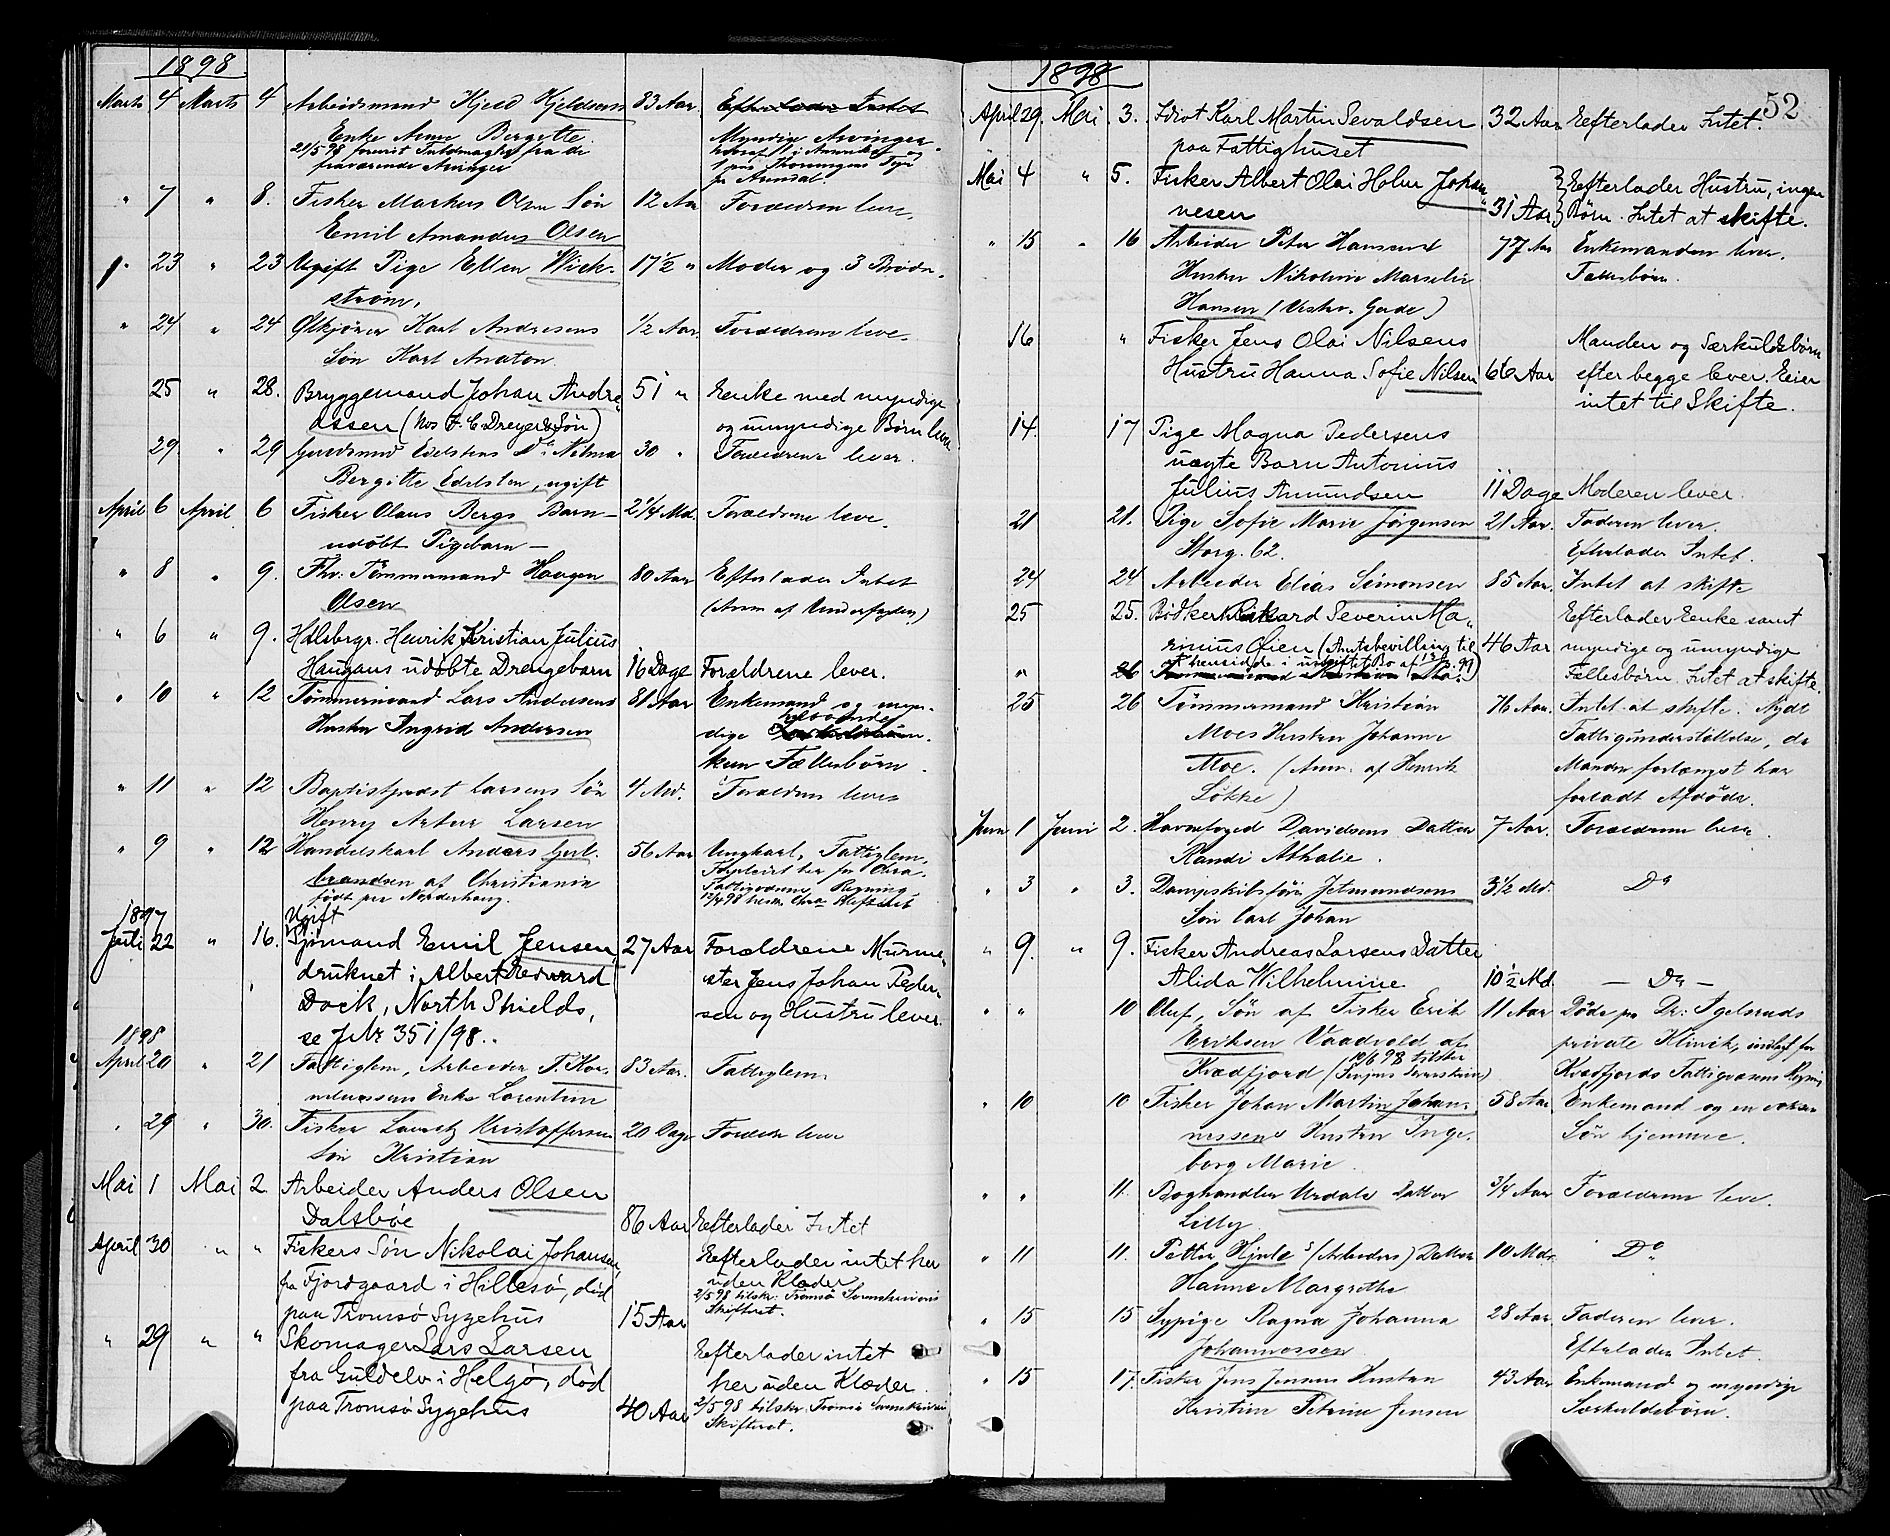 1898
Marts 4 Marts 4 Arbeidsmand Kjeld Kjeldsens 83 Aar. Efterlader Intet
Enke Anne Bergitte Myndige Arvinger
21/5 98 forevist Fuldmagter fra de
fraværende Arvinger fr Arendal.
" 7 " 8. Fisker Markus Olsen Søn 12 Aar Forældren leve.
Emil Amandus Olsen
" 23 " 23 Ugift Pige Ellen Wick- 17½ " Moder og 3 Brødre.
strøm.
" 24 " 24 Ølkjører Karl Andresens ½ Aar. Forældrene leve.
Søn Karl Anaton.
25 " 28. Bryggemand Johan Andre- 51 " Enke med myndige
assen (hos J. C Dreyer & Søn) og umyndige Børn lever
29 " 29 Edelstens Dr. Nilma 30 " Forældrene lever.
Bergitte Edelsten, ugift
April 6 April 6 Fisker Olaus Bergs Barn- 2¼ Md. Forældrene leve.
udøbt Pigebarn-
" 8 " 9. Fhv. Tømmermand Haagen 80 Aar Efterlader Intet
Olsen (Anm af Underfogden)
" 6 " 9. Hdlsbrgr. Henrik Kristian Julius
Haugans udøbte Drengebarn 16 Dage Forældrene lever.
" 10 " 12 Tømmermand Lars Andersens 81 Aar Enkemand og myn-
Hustru Ingrid Andersen dige
kun Fællesbørn.
" 11 " 12 Baptistprest Larsens Søn 4 Md. Forældrene lever
Henry Artur Larsen
" 9 " 12 Handelskarl Anders Gul- 56 Aar Ungkarl, Fattiglem,
brandsen af Christiania Forpleiet her for Chra.
født paa Norderhoug. Fattigvæsens Regning.
12/4 98 tilskr. Chra Skifteret
1897 Ugift
Juli 22 " 16. Sjømand Emil Jensen, 27 Aar Forældrene Murme-
druknet i Albert Edward ster Jens Johan Peder-
Dock, North Shields, sen og Hustru lever.
se J № 351/98.
1898
April 20 " 21 Fattiglem, Arbeider T. Kor- 83 Aar. Fattiglem
neliussens Enke Lorentine
" 29 " 30. Fisker Lauritz Kristoffersens 20 Dage Forældre leve
Søn Kristian
Mai 1 Mai 2 Arbeider Anders Olsen
Dalsbøe 86 Aar Efterlader Intet
April 30 " " Fiskers Søn Nikolai Johansen, Efterlader intet her
fra Fjordgaard i Hillesø, død uden Klæder
paa Tromsø Sygehus 15 Aar 2/5 98 tilskr. Tromsø Sorenskriveris
Skifteret.
" 29 " " Skomager Lars Larsen Efterlader intet
fra Guldelv i Helgø, død her uden Klæder.
paa Tromsø Sygehus 40 Aar 2/5 98 tilskr. Tromsø Sorenskriveri
Skifteret.
1898
52
April 29. Mai 3. Idiot Karl Martin Sevaldsen 32 Aar Efterlader Intet.
paa Fattighuset
Mai 4 " 5. Fisker Albert Olai Holm Johan- Efterlader Hustru, ingen
nesen 31 Aar Børn. Intet at skifte.
" 15 " 16 Arbeider Peter Hansens 77 Aar Enkemanden lever.
Hustru Nikoline Marselie Fællesbørn.
Hansen (Vestre. Gade)
16 " Fisker Jens Olai Nilsens Manden og Særkuldsbørn
Hustru Hanna Sofie Nilsen 66 Aar efter begge lever. Eier
intet til Skifte.
14. 17 Pige Magna Pedersens
uægte Barn Antonius
Julius Amundsen 11 Dage Moderen lever.
21 21. Pige Sofie Marie Jørgensen 21 Aar. Faderen lever.
Storg. 62. Efterlader Intet.
24 24 Arbeider Elias Simonsen 85 Aar. Intet at skifte
25 25. Bødker Rikard Severin Ma- Efterlader Enke samt
rinius Øien (Amtsbevilling til 46 Aar myndige og umyndige
at hensidde i uskiftet Bo af 13/6 99) Fællesbørn. Intet at skifte.
" 26
25 26 Tømmermand Kristian 76 Aar. Intet at skifte. Nydt
Moes Hustru Johanne Fattigunderstøttelse, da
Moe. (Anm. af Henrik Manden forlængst har
Løkke) forladt Afdøde.
Juni 1 Juni 2. Havnefoged Davidsens Datter 7 Aar. Forældrene leve.
Randi Athalie.
" 3 " 3. Dampskibsfører Jetmundsens 3½ Md. Do
Søn Carl Johan
" 9. " 9. Fisker Andreas Larsens Datter
Alida Wilhelmine 10½ Md. — Do —
" " 10 Oluf, Søn af Fisker Erik 11 Aar Døde paa Dr. Igelsruds
Eriksen Vaadvold af private Klinik, indlagt for
Kvædfjord (10/6 98 tilskr Senjens Sorenskriver) Kvædfjords Fattigvæsens Regning
" 10 10 Fisker Johan Martin Johan- 58 Aar Enkemand og en voksen
nessens Hustru Inge- Søn hjemme.
borg Marie.
" " 11. Boghandler Urdals Datter ¾ Aar Forældrene leve.
Lilly
" 11 11. Petter Hjelle's (Arbeiders) Datter 10 Mdr. Do
Hanne Margrethe
" 15 15 Sypige Ragna Johanna 28 Aar. Faderen lever.
Johannessen Efterlader Intet.
" 15 17. Fisker Jens Jensens Hustru 43 Aar. Enkemand og myndige
Kristine Petrine Jensen Særkuldsbørn.